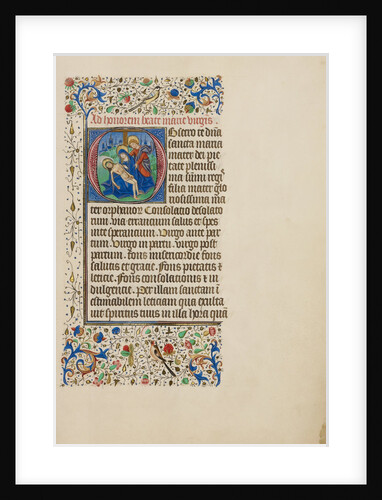 Ad honorem beate marie virgīs.
Obsecro te dña
sancta maria
mater dei pie
tate plenissi
ma summi regis
filia mater glo
riosissima ma
ter orphanor Consolatio desolato
rum via errancium salus et spes
inte sperancium. Virgo ante par
tum. Virgo in partu. Virgo post
partum. Fons misericordie fons
salutis et gracie. Fons pietatis et
leticie. Fons consolationis et in
dulgencie. Per illam sanctam i
estimabilem leticiam qua exulta
uit spiritus tuus in illa hora qua